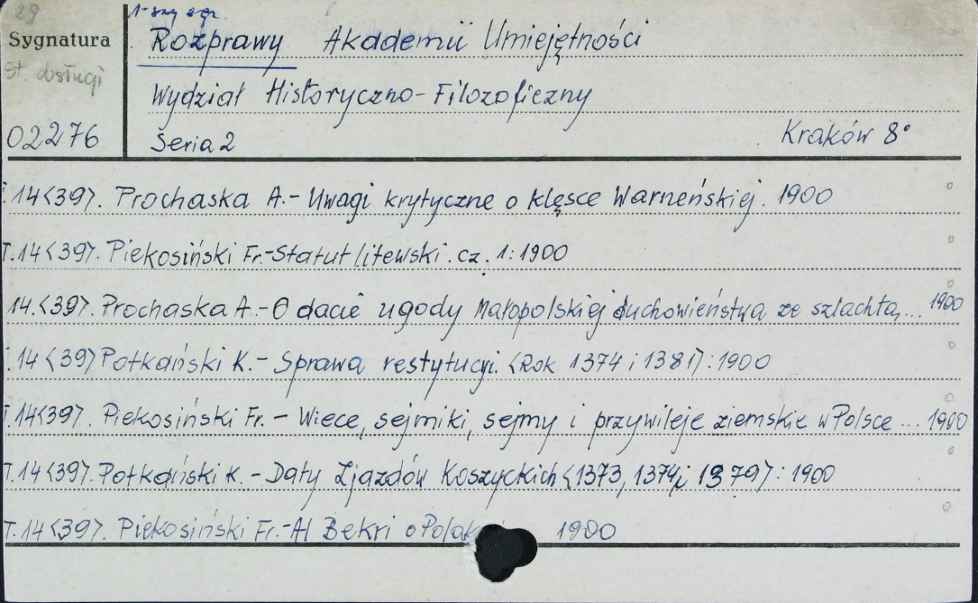 29
1-szy egz.
Sygnatura
Rozprawy Akademii Umiejętności
st. obsługi
Wydział Historyczno-Filozoficzny
02276
Seria 2 Kraków 8°
T.14<39>. Prochaska A.- Uwagi krytyczne o klęsce Warneńskiej. 1900
T.14<39>. Piekosiński Fr.-Statut litewski. cz. 1:1900
14.<39>. Prochaska A.-O dacie ugody Małopolskiej duchowieństwa ze szlachtą... 1900
.14<39> Potkański K.- Sprawa restytucyi. <Rok 1374 i 1381>:1900
T.14<39>. Piekosiński Fr.- Wiece, sejmiki, sejmy i przywileje ziemskie w Polsce ... 1900
T.14<39>. Potkański K.-Daty Zjazdów Koszyckich <1373, 1374, i 1379>: 1900
T.14<39>. Piekosiński Fr.-Al Bekri o Polak 1900